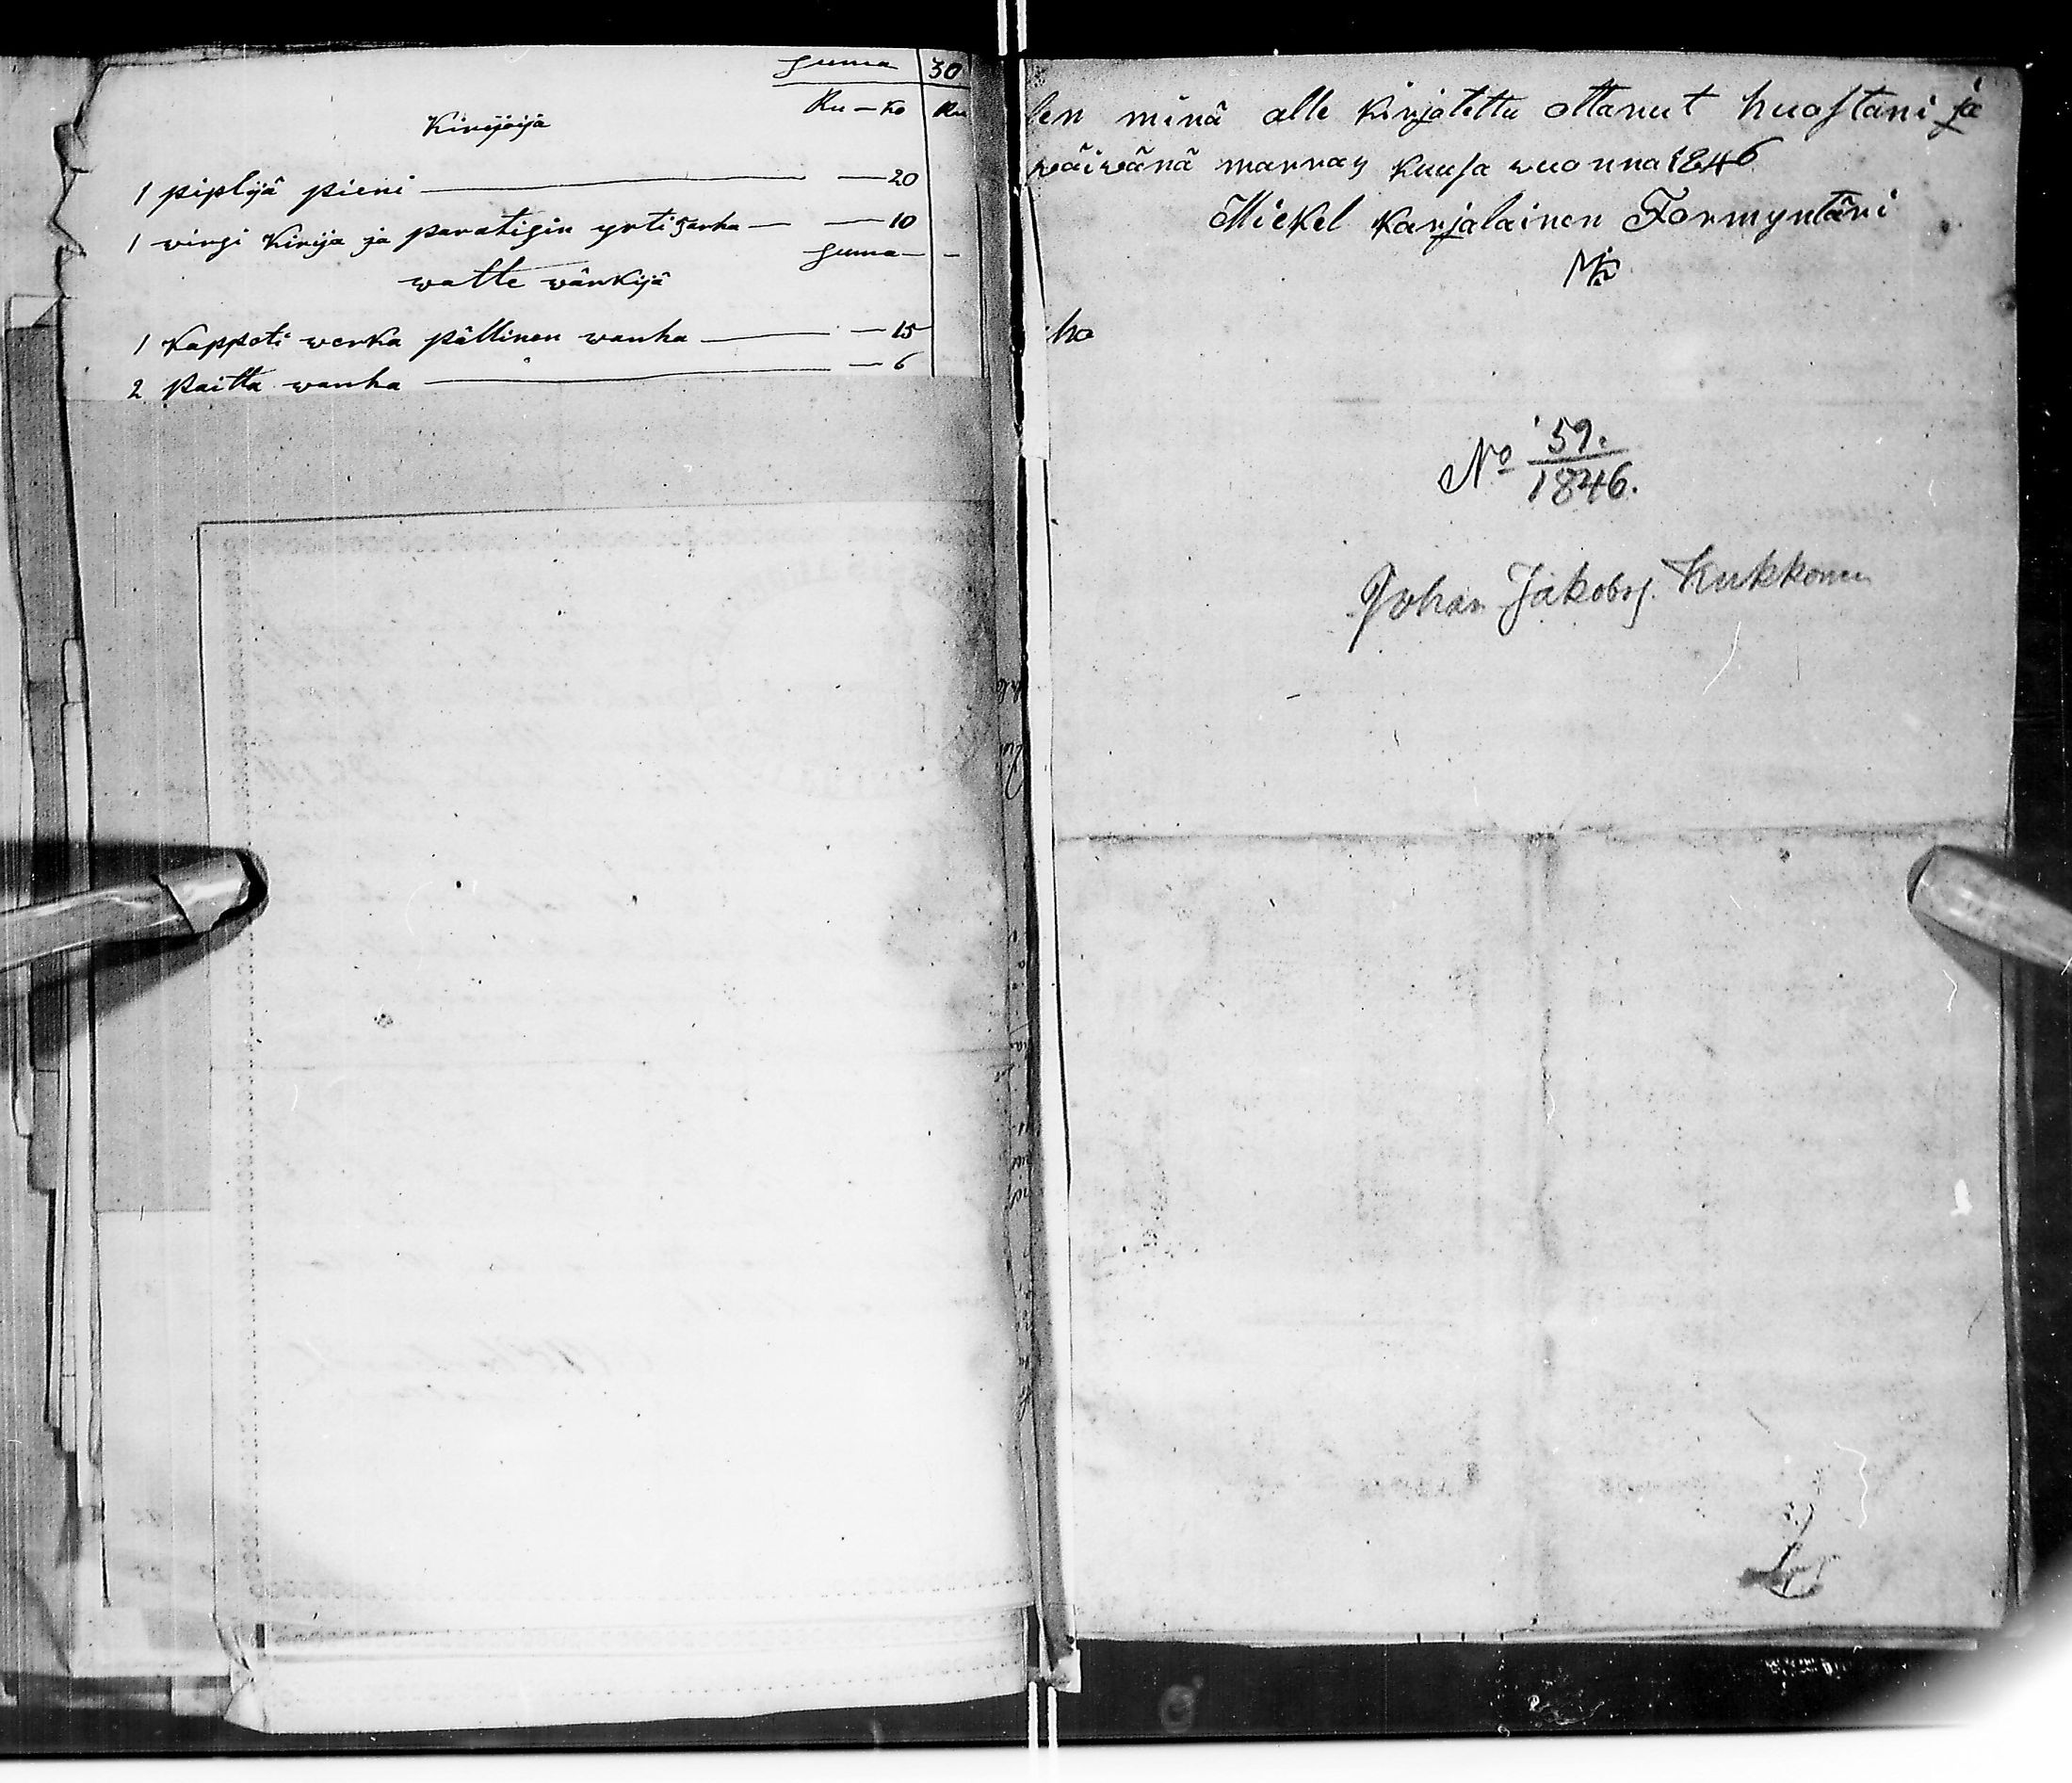 Summa 30
Ru — ko Ru
Kirijoija
1 piplijä pieni — — 20
1 virsi Kirija ja paratisin yrtisarha — — 10
Summa — -
watte wärkijä
1 Kappoti werka pällinen wanha — — 15
2 Paitta wanha — — 6
len minä alle kirjotettu ottanut huostani ja
päiwänä marras kuusa wuonna 1846
Mickel Karjalainen Formyntäri
ho
No 59.
1846.
Johan Jakobs. Kukkonen